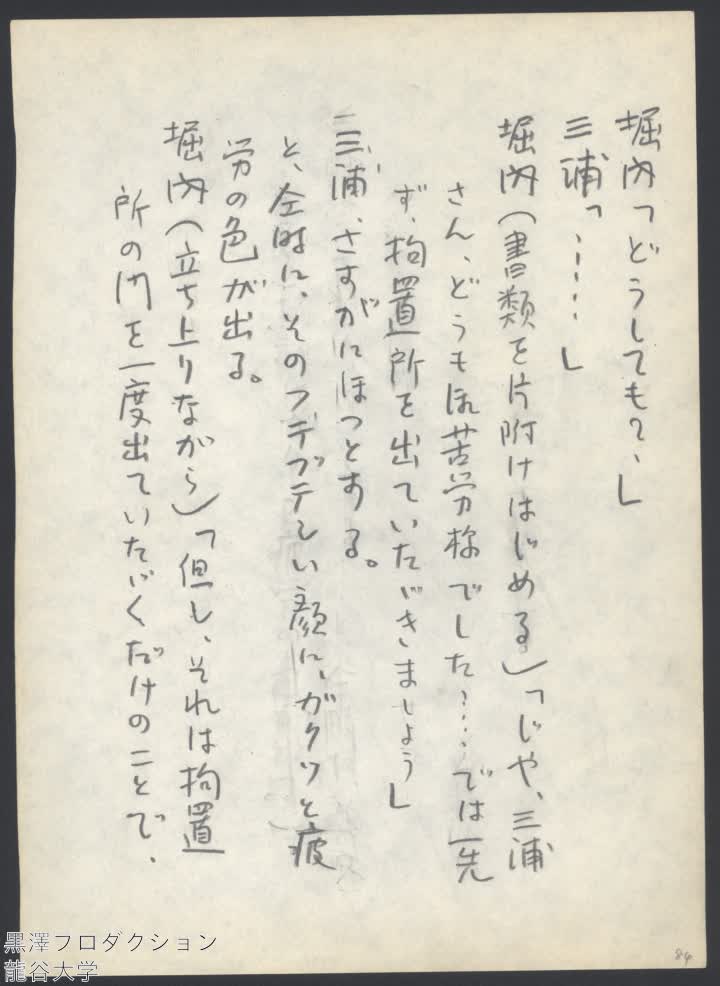 堀内「どうしても?、」
三浦「‥‥‥」
堀内(書類を片附けはじめる)「じや、三浦
さん、どうも御苦労様でした‥‥では一先
ず、拘置所を出ていたゞきましよう」
三浦、さすがにほつとする。
と、仝時に、そのフテブテしい顔に、ガクツと疲
労の色が出る。
堀内(立ち上りながら)「但し、それは拘置
所の門を一度出ていたゞくだけのことで、
84
黒澤フロダクション
龍谷大学